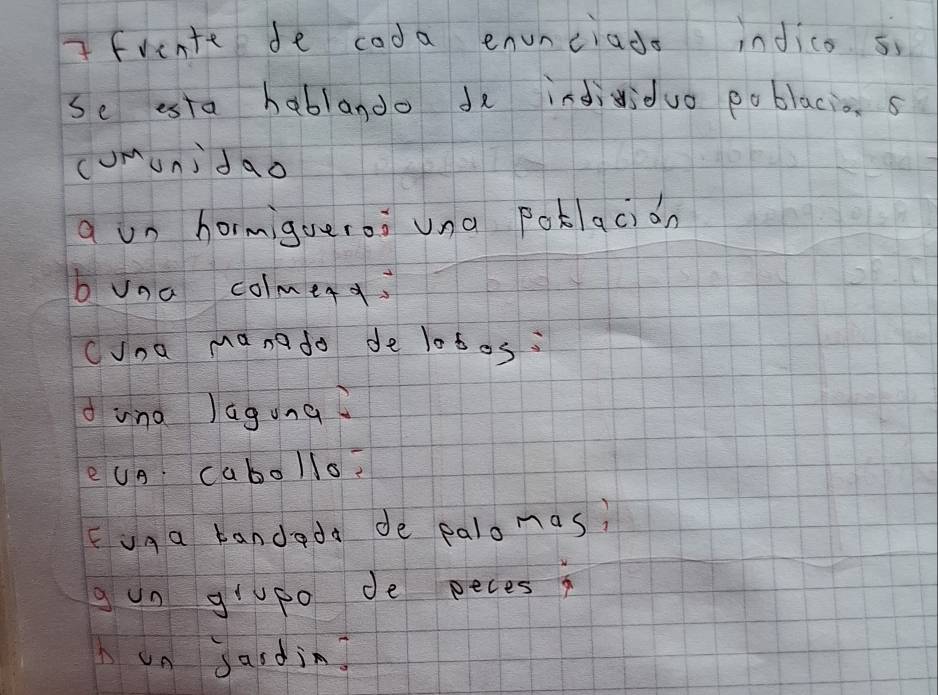 7 frente de coda enunciado indico si
se esta hablando de individuo poblacion s
cumunidao
a un hormiguero: una Población
b una colmena:
c una manado de lobos:
d una laguna:
e un caballo:
F una bandada de palomas:
g un grupo de peces:
h un jardin: